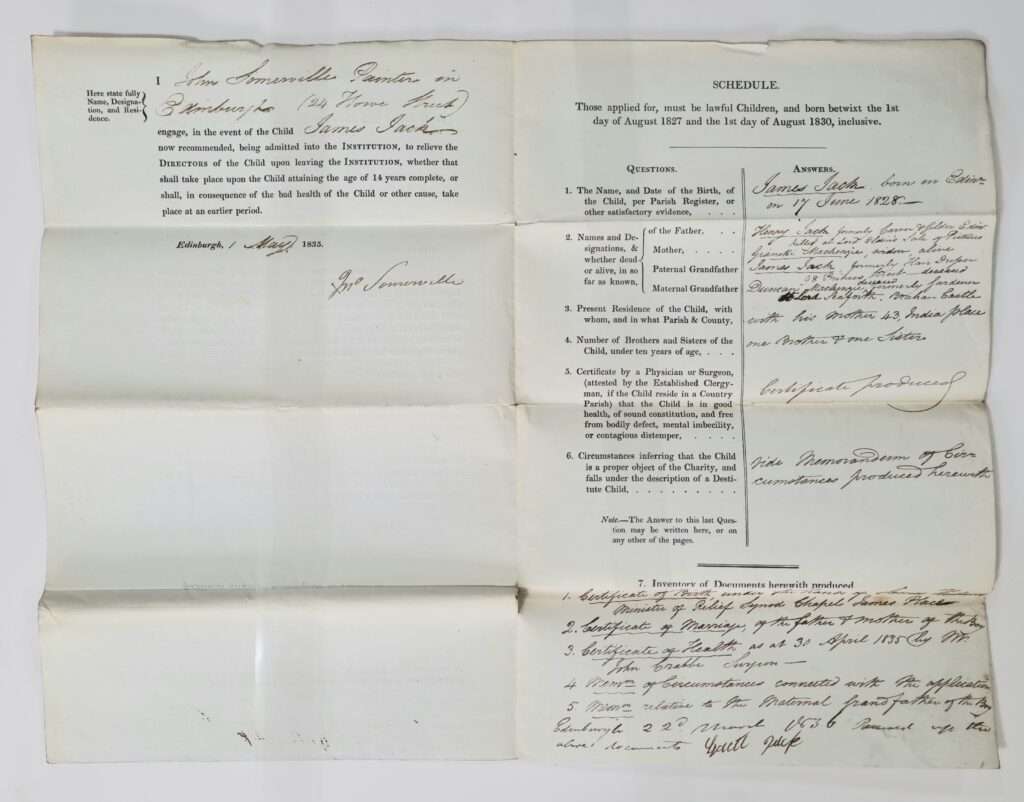 I John Somerville Painter in
Here state fully
Name, Designa-
tion, and Resi-
dence.
Edinburgh (24 Howe Street)
engage, in the event of the Child James Jack
now recommended, being admitted into the INSTITUTION, to relieve the
DIRECTORS of the Child upon leaving the INSTITUTION, whether that
shall take place upon the Child attaining the age of 14 years complete, or
shall, in consequence of the bad health of the Child or other cause, take
place at an earlier period.
Edinburgh, 1 May 1835.
Jno Somerville
SCHEDULE.
Those applied for, must be lawful Children, and born betwixt the 1st
day of August 1827 and the 1st day of August 1830, inclusive.
QUESTIONS.
ANSWERS.
1. The Name, and Date of the Birth, of
the Child, per Parish Register, or
other satisfactory evidence, . . .
James Jack born in Edinr
on 17 June 1828.—
2. Names and De-
signations, &
whether dead
or alive, in so
far as known,
of the Father. . .
Mother, . . . .
Paternal Grandfather
Maternal Grandfather
Henry Jack formerly Carver & Gilder Edinr
killed at Lord Eldin's Sale of Pictures
Mackenzie, widow, alive
James Jack formerly Hair Dresser
98 Princes Street deceased
Duncan Mackenzie formerly Gardener
deceased
to Lord Seaforth, Brahan Castle
3. Present Residence of the Child, with
whom, and in what Parish & County,
with his mother 43, India place
4. Number of Brothers and Sisters of the
Child, under ten years of age, . . .
one Brother & one Sister
5. Certificate by a Physician or Surgeon,
(attested by the Established Clergy-
man, if the Child reside in a Country
Parish) that the Child is in good
health, of sound constitution, and free
from bodily defect, mental imbecility,
or contagious distemper, . . . . .
Certificate produced
6. Circumstances inferring that the Child
is a proper object of the Charity, and
falls under the description of a Desti-
tute Child, . . . . . . . . .
Vide Memorandum of Cir-
cumstances produced herewith
Note.—The Answer to this last Ques-
tion may be written here, or on
any other of the pages.
7. Inventory of Documents herewith produced
1. Certificate of Birth under the hand of
Minister of Relief Synod Chapel James Place
2. Certificate of Marriage, of the father & mother of the Boy
3. Certificate of Health as at 30 April 1835 by Mr
John Crabbe Surgeon —
4 Memm of Circumstances connected with the application
5 Memm relative to the Maternal grandfather of the Boy
Edinburgh 22d March 1836 Received up the
above documents